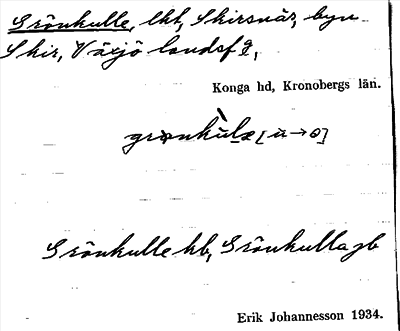 Grönkulle, lht, Skirsnäs, byn
Skir, Växjö landsf g,
Konga hd, Kronobergs län.
grønkùlæ [ù→o]
Grönkulle hb, Grönkulla jb
Erik Johannesson 1934.